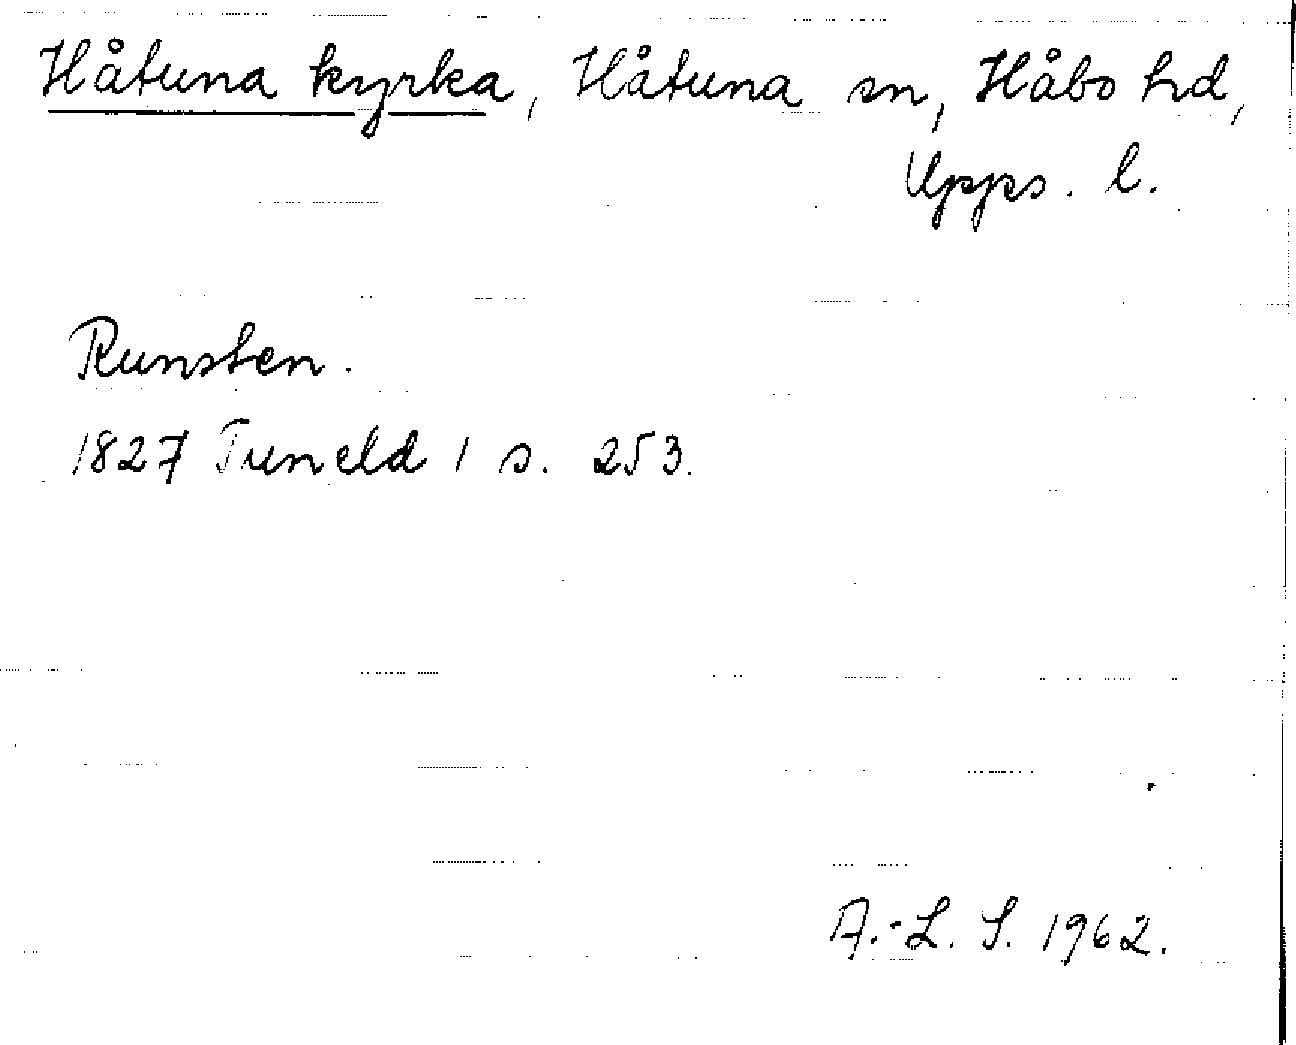 Håtuna kyrka, Håtuna sn, Håbo hd,
Upps. l.
Runsten.
1827 Tuneld 1 s. 253.
A.-L. S. 1962.